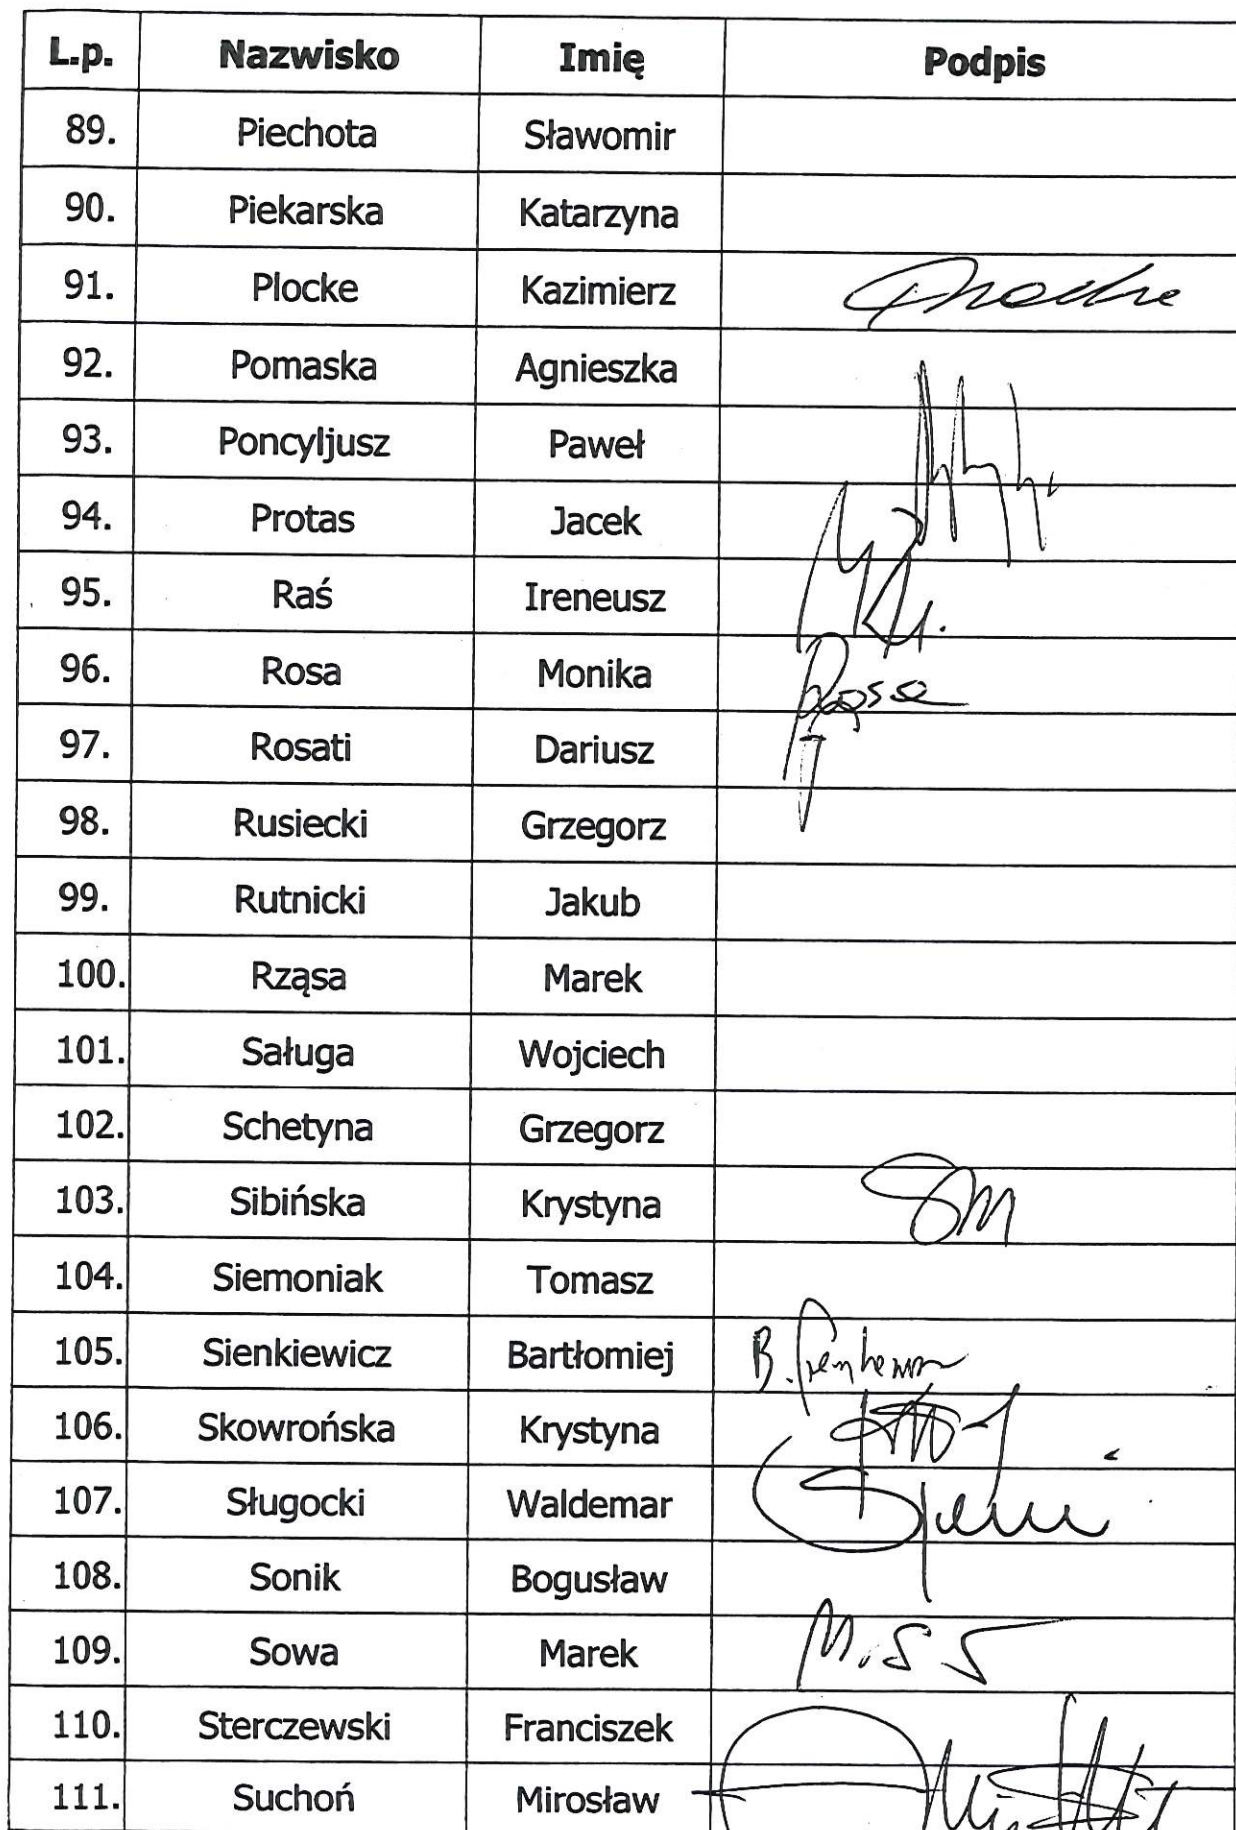 L.p. Nazwisko Imię Podpis
89. Piechota Sławomir
90. Piekarska Katarzyna
91. Plocke Kazimierz Plocke
92. Pomaska Agnieszka
93. Poncyljusz Paweł
94. Protas Jacek
95. Raś Ireneusz
96. Rosa Monika Rosa
97. Rosati Dariusz
98. Rusiecki Grzegorz
99. Rutnicki Jakub
100. Rząsa Marek
101. Saługa Wojciech
102. Schetyna Grzegorz
103. Sibińska Krystyna
104. Siemoniak Tomasz
105. Sienkiewicz Bartłomiej B. Sienkiewicz
106. Skowrońska Krystyna
107. Sługocki Waldemar
108. Sonik Bogusław
109. Sowa Marek M. S
110. Sterczewski Franciszek
111. Suchoń Mirosław